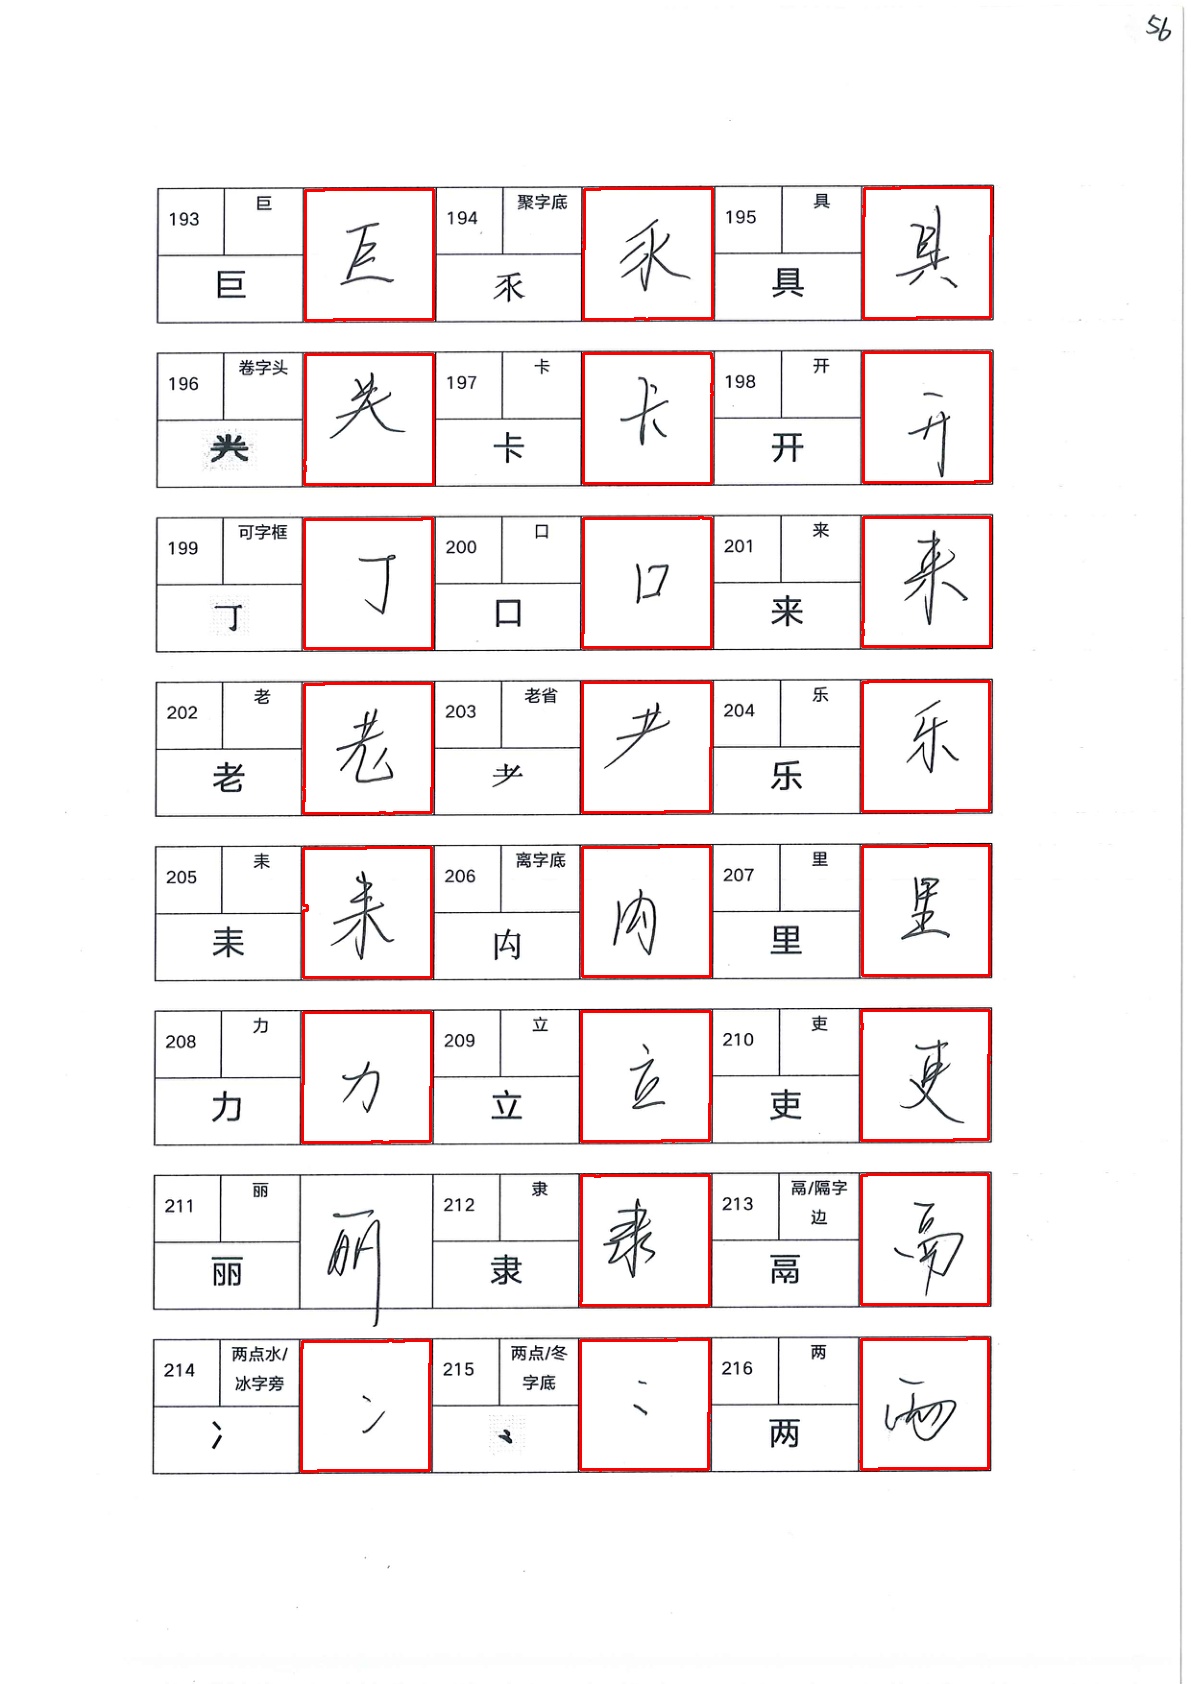 56
193 巨 巨 194 聚字底 乑 195 具 具
巨 乑 具
196 卷字头 龹 197 卡 卡 198 开 开
龹 卡 开
199 可字框 丁 200 口 口 201 来 来
丁 口 来
202 老 老 203 老省 耂 204 乐 乐
老 耂 乐
205 耒 耒 206 离字底 禸 207 里 里
耒 禸 里
208 力 力 209 立 立 210 吏 吏
力 立 吏
211 丽 丽 212 隶 隶 213 鬲/隔字边 鬲
丽 隶 鬲
214 两点水/冰字旁 冫 215 两点/冬字底 ⺀ 216 两 两
冫 ⺀ 两